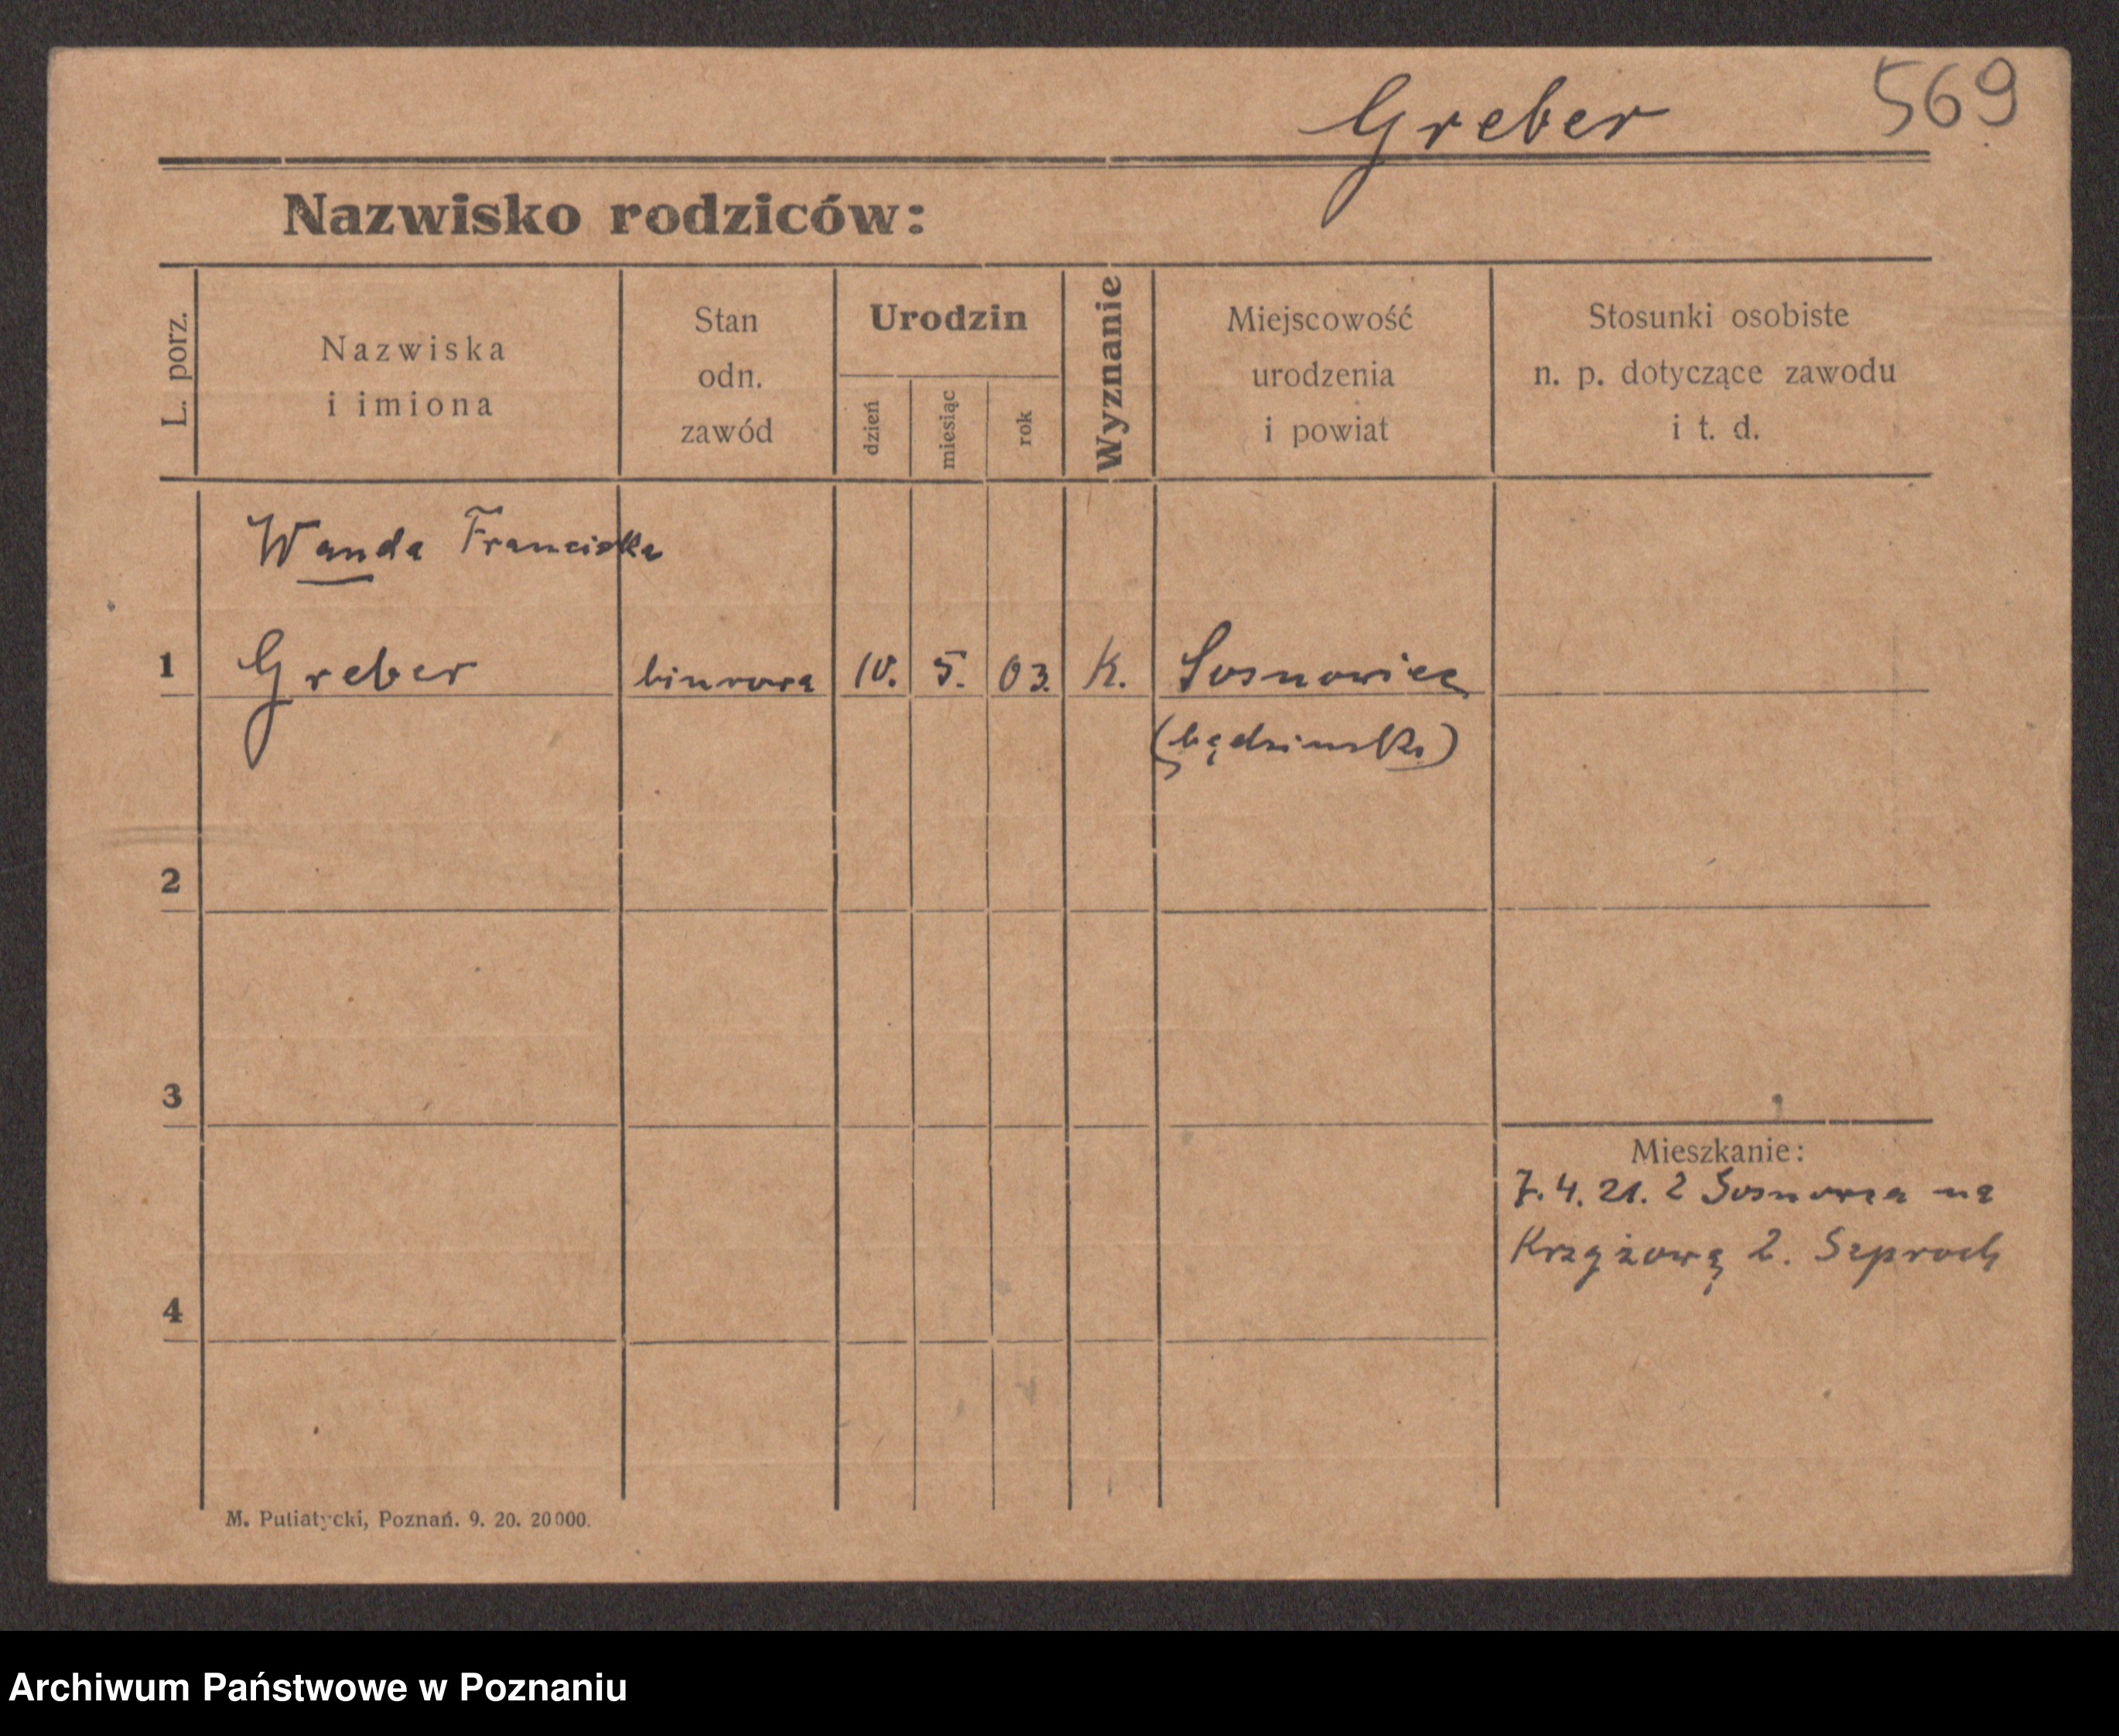 Greber 569
Nazwisko rodziców:
L. porz.
Nazwiska
i imiona
Stan
odn.
zawód
Urodzin
dzień
miesiąc
rok
Wyznanie
Miejscowość
urodzenia
i powiat
Stosunki osobiste
n. p. dotyczące zawodu
i t. d.
Wanda Franciska
1 Greber biurowa 10. 5. 03. K. Sosnowiec
(będzinski)
2
3
Mieszkanie:
7. 4. 21. z Sosnowca na
Krzyżową 2. Szproch
4
M. Putiatycki, Poznań. 9. 20. 20000.
Archiwum Państwowe w Poznaniu